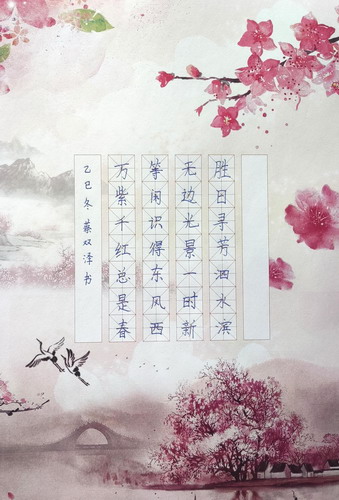 胜日寻芳泗水滨
无边光景一时新
等闲识得东风西
万紫千红总是春
乙巳冬 蔡双泽书